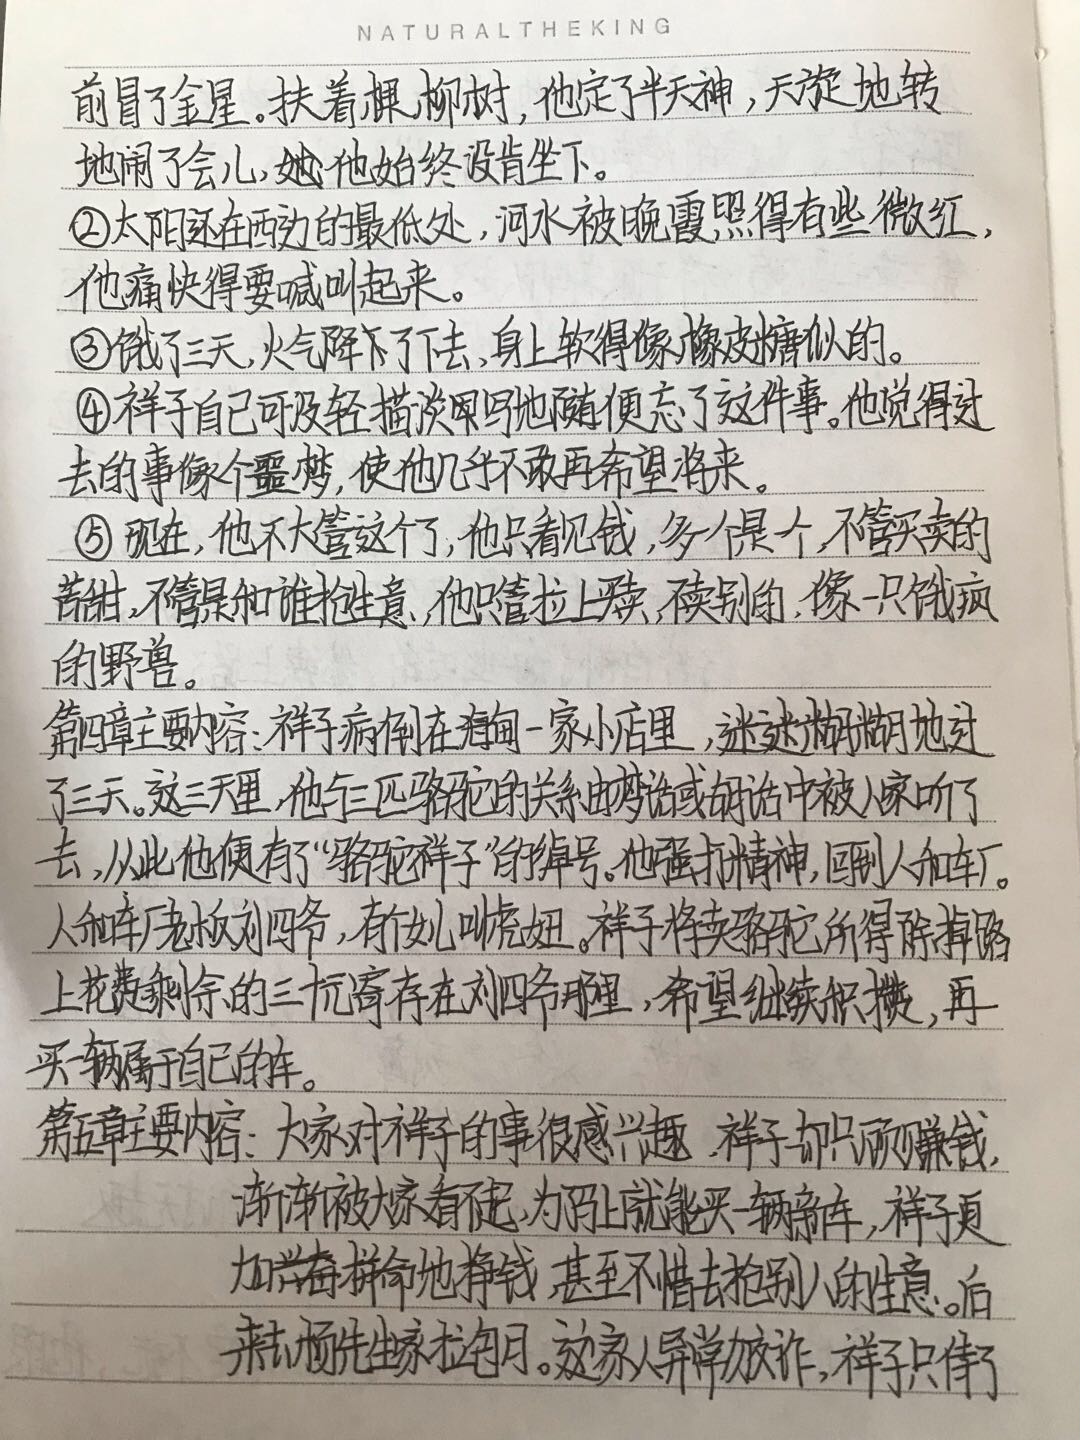 NATURALTHEKING
前冒了金星。扶着棵柳树，他定了半天神，天旋地转
地闹了会儿，她他始终没肯坐下。
②太阳还在西边的最低处，河水被晚霞照得有些微红，
他痛快得要喊叫起来。
③饿了三天，火气降下了下去，身上软得像橡皮糖似的。
④祥子自己可没轻描淡写吗地随便忘了这件事。他觉得过
去的事像个噩梦，使他几乎不敢再希望将来。
⑤现在，他不大管这个了，他只看见钱，多一个是一个，不管买卖的
苦甜，不管是和谁抢生意，他只管拉上买卖，不卖别的，像一只饿疯
的野兽。
第四章主要内容：祥子病倒在海甸一家小店里，迷迷糊糊地过
了三天。这三天里，他与三匹骆驼的关系由梦话或胡话中被人家听了
去，从此他便有了“骆驼祥子”的绰号。他强打精神，回到人和车厂。
人和车厂老板刘四爷，有个女儿叫虎妞。祥子将卖骆驼所得除掉路
上花费剩余的三十元寄存在刘四爷那里，希望继续积攒，再
买一辆属于自己的车。
第五章主要内容：大家对祥子的事很感兴趣，祥子却只顾赚钱，
渐渐被大家看不起，为马上就能买一辆新车，祥子更
加兴奋拼命地挣钱，甚至不惜去抢别人的生意。后
来去杨先生家拉包月。这家人异常狡诈，祥子只待了